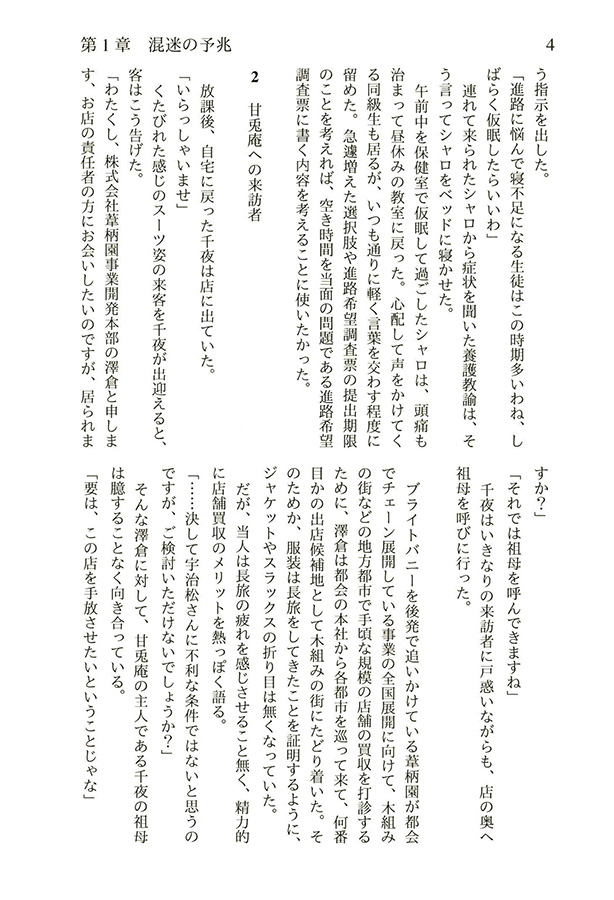 第1章　混迷の予兆
4
う指示を出した。
「進路に悩んで寝不足になる生徒はこの時期多いわね、し
ばらく仮眠したらいいわ」
　連れて来られたシャロから症状を聞いた養護教諭は、そ
う言ってシャロをベッドに寝かせた。
　午前中を保健室で仮眠して過ごしたシャロは、頭痛も
治まって昼休みの教室に戻った。心配して声をかけてく
る同級生も居るが、いつも通りに軽く言葉を交わす程度に
留めた。急遽増えた選択肢や進路希望調査票の提出期限
のことを考えれば、空き時間を当面の問題である進路希望
調査票に書く内容を考えることに使いたかった。
2　甘兎庵への来訪者
　放課後、自宅に戻った千夜は店に出ていた。
「いらっしゃいませ」
　くたびれた感じのスーツ姿の来客を千夜が出迎えると、
客はこう告げた。
「わたくし、株式会社葦柄園事業開発本部の澤倉と申しま
す、お店の責任者の方にお会いしたいのですが、居られま
すか？」
「それでは祖母を呼んできますね」
　千夜はいきなりの来訪者に戸惑いながらも、店の奥へ
祖母を呼びに行った。
　ブライトバニーを後発で追いかけている葦柄園が都会
でチェーン展開している事業の全国展開に向けて、木組み
の街などの地方都市で手頃な規模の店舗の買収を打診する
ために、澤倉は都会の本社から各都市を巡って来て、何番
目かの出店候補地として木組みの街にたどり着いた。そ
のためか、服装は長旅をしてきたことを証明するように、
ジャケットやスラックスの折り目は無くなっていた。
　だが、当人は長旅の疲れを感じさせること無く、精力的
に店舗買収のメリットを熱っぽく語る。
「……決して宇治松さんに不利な条件ではないと思うの
ですが、ご検討いただけないでしょうか？」
　そんな澤倉に対して、甘兎庵の主人である千夜の祖母
は臆することなく向き合っている。
「要は、この店を手放させたいということじゃな」